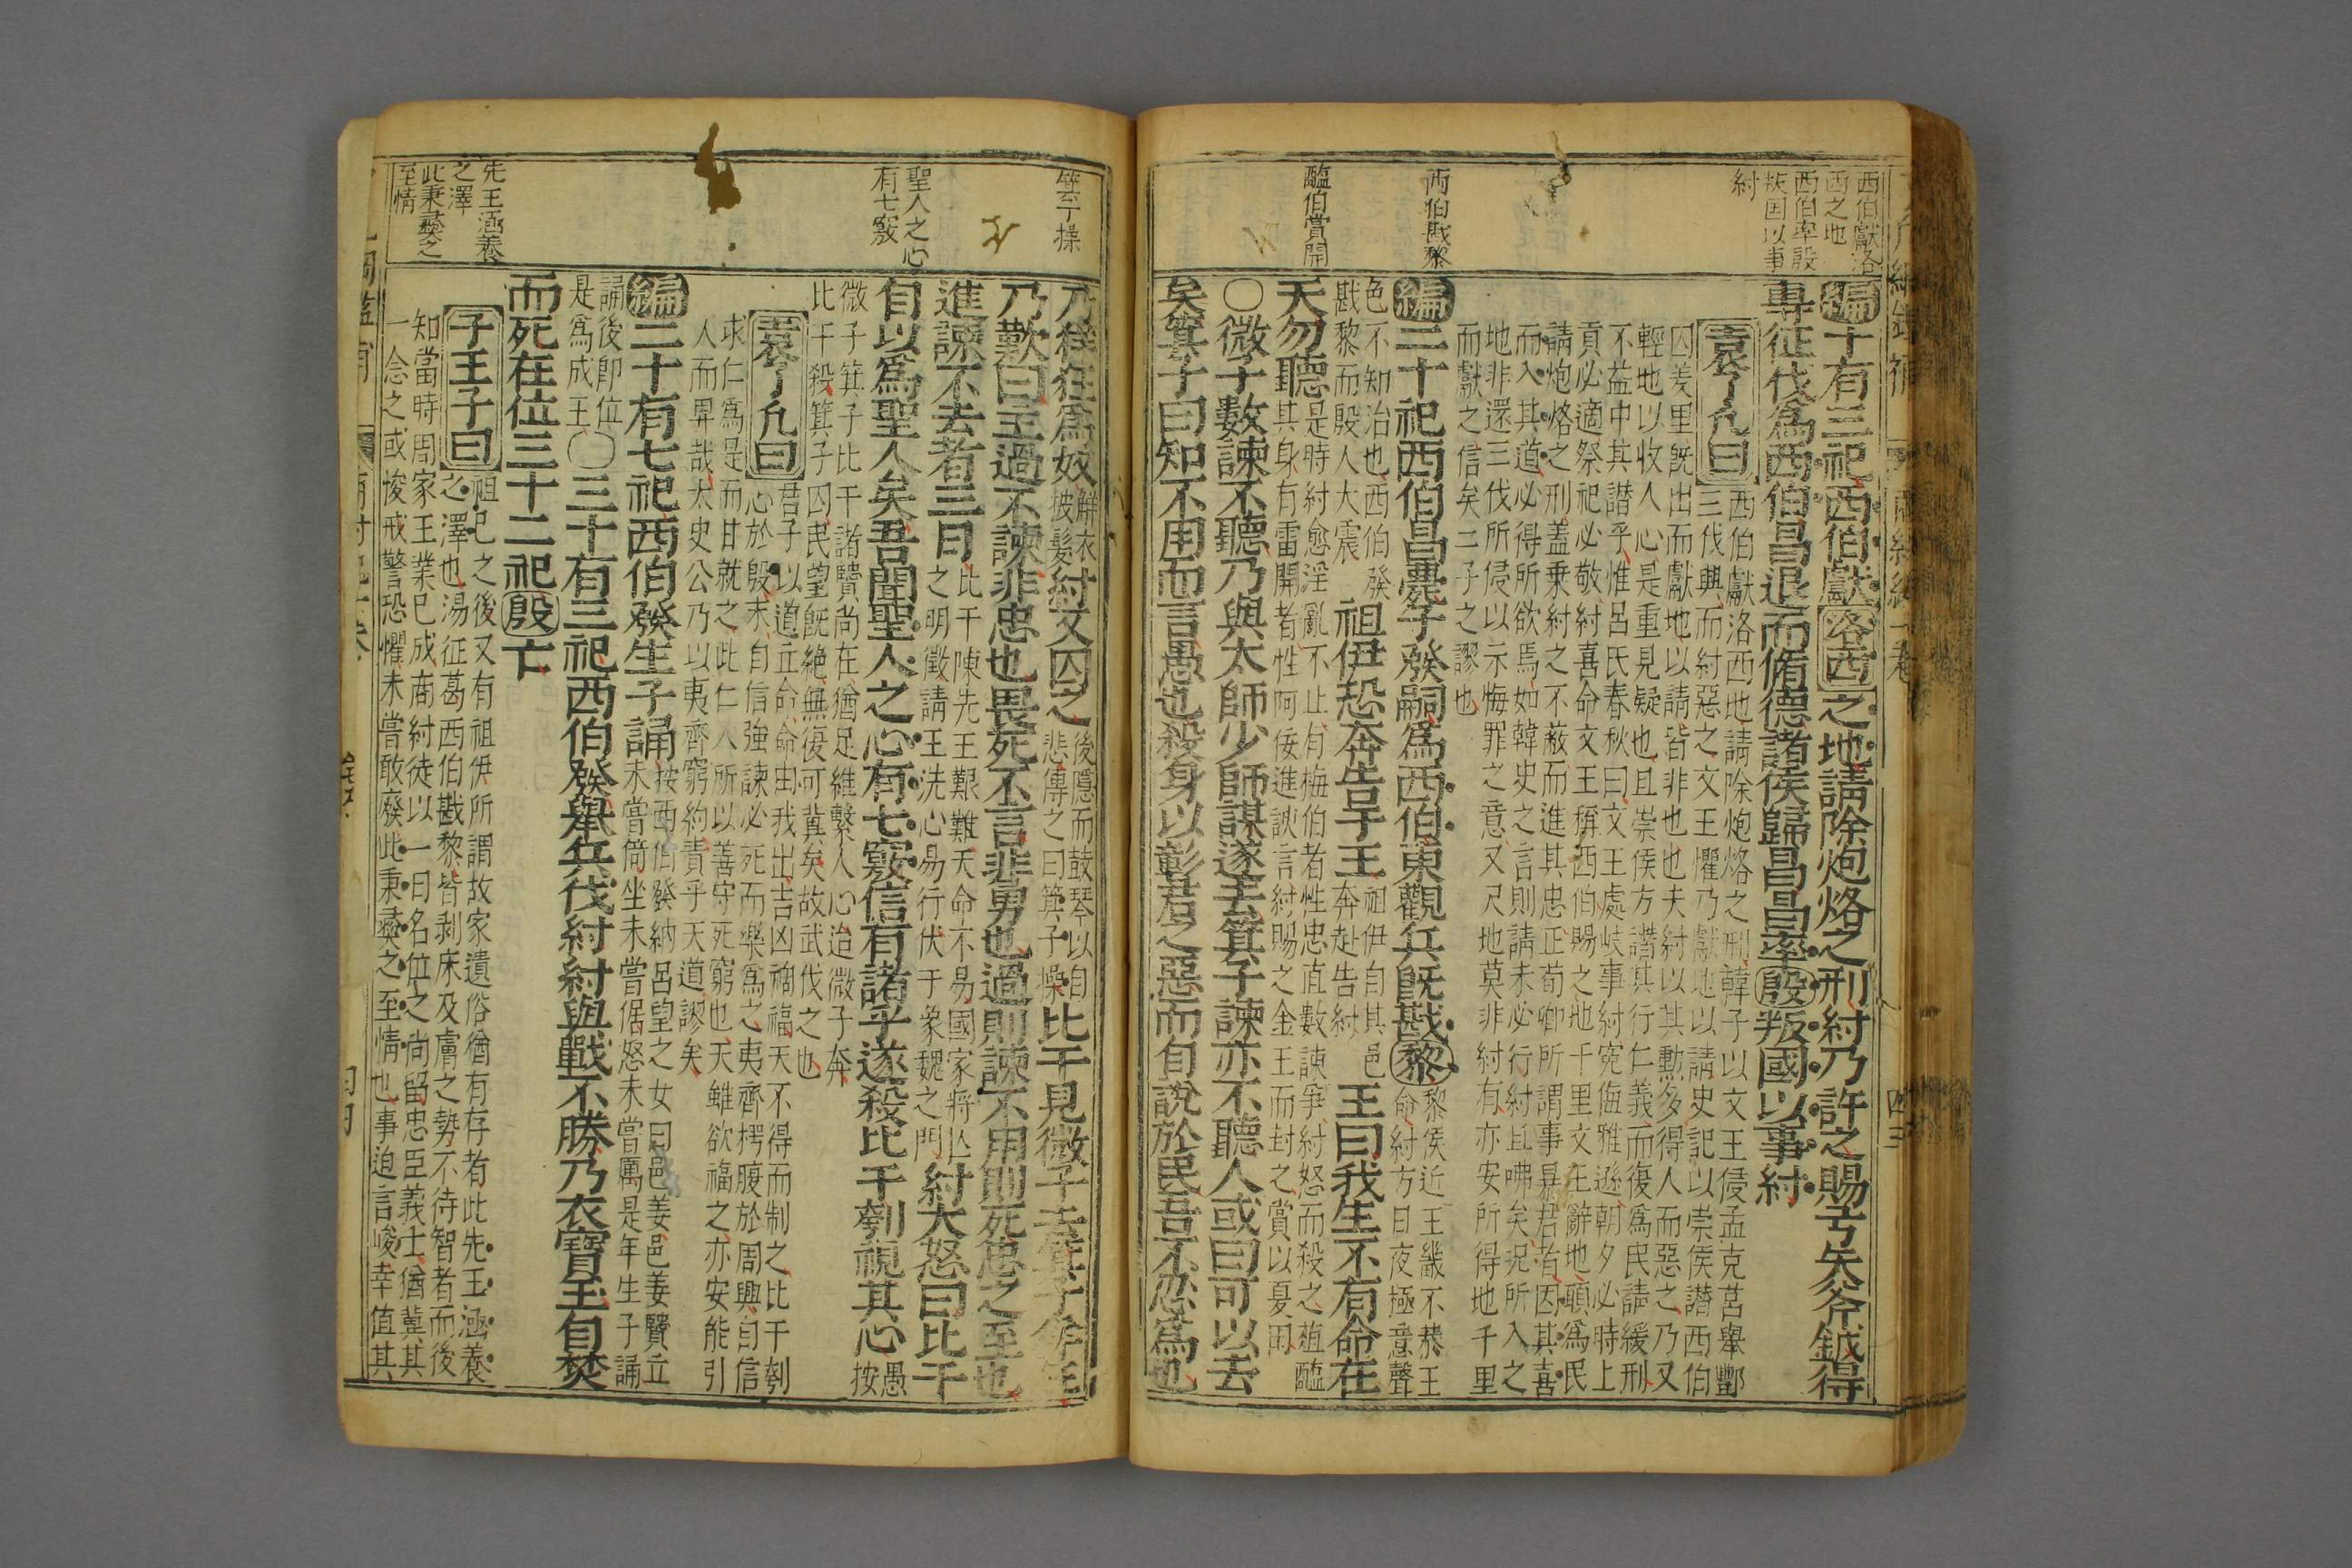 西伯獻洛
西之地
西伯率殷
叛国以事
紂
西伯戡黎
醢伯賞開
編十有三祀西伯獻洛西之地請除炮烙之刑紂乃許之賜弓矢斧鉞得
專征伐爲西伯昌退而脩德諸侯歸昌昌率殷叛國以事紂
袁了凡曰
西伯獻洛西地請除炮烙之刑韓子以文王侵孟克莒舉酆
三伐興而紂惡之文王懼乃獻地以請史記以崇侯譖西伯
囚羑里旣出而獻地以請皆非也夫紂以其勲多得人而惡之乃又
輕地以收人心是重見疑也且崇侯方譖其行仁義而復爲民請緩刑
不益中其譖乎惟呂氏春秋曰文王處岐事紂寃侮雅遜朝夕必時上
貢必適祭祀必敬紂喜命文王稱西伯賜之地千里文王辭地願爲民
請炮烙之刑蓋乗紂之不蔽而進其忠正荀卿所謂事暴君者因其喜
而入其道必得所欲焉如韓史之言則請未必行紂且咈矣况所入之
地非還三伐所侵以示悔罪之意又尺地莫非紂有亦安所得地千里
而獻之信矣二子之謬也
編二十祀西伯昌薨子發嗣爲西伯東觀兵旣戡黎
黎侯近王畿不恭王
命紂方日夜極意聲
色不知治也西伯發
戡黎而殷人大震
祖伊恐奔告于王
祖伊自其邑
奔赴告紂
王曰我生不有命在
天勿聽
是時紂愈淫亂不止有梅伯者性忠直數諫爭紂怒而殺之葅醢
其身有雷開者性阿佞進諛言紂賜之金王而封之賞以夏田
〇微子數諫不聽乃與太師少師謀遂去箕子諫亦不聽人或曰可以去
矣箕子曰知不用而言愚也殺身以彰君之惡而自說於民吾不忍爲也
箕子操
聖人之心
有七竅
先王涵養
之澤
此秉彞之
至情
乃佯狂爲奴
解衣
披髮
紂又囚之
後隱而鼓琴以自
悲傳之曰箕子操
比干見微子去箕子
乃歎曰主過不諫非忠也畏死不言非勇也過則諫不用則死忠之至也
進諫不去者三日
比干陳先王艱難天命不易國家將亡
之明徵請王洗心易行伏于象魏之門
紂大怒曰比干
自以爲聖人矣吾聞聖人之心有七竅信有諸乎遂殺比干刳視其心
愚
按
微子箕子比干諸賢尚在猶足維繫人心迨微子奔
比干殺箕子囚民望旣絶無復可冀矣故武伐之也
袁了凡曰
君子以道立命命由我出吉凶禍福天不得而制之比干刳
心於殷末自信強諫必死而樂爲之夷齊樗腹於周興自信
求仁爲是而甘就之此仁人所以善守死窮也天雖欲福之亦安能引
人而畀哉太史公乃以夷齊窮約責乎天道謬矣
編二十有七祀西伯發生子誦
按西伯發納呂望之女曰邑姜邑姜賢立
未嘗倚坐未嘗倨怒未嘗厲是年生子誦
誦後卽位
是爲成王
〇三十有三祀西伯發舉兵伐紂紂與戰不勝乃衣寶玉自焚
而死在位三十二祀殷亡
子王子曰
祖已之後又有祖伊所謂故家遺俗猶有存者此先王涵養
之澤也湯征葛西伯戡黎皆剥床及膚之勢不待智者而後
知當時周家王業已成商紂徒以一日名位之尚留忠臣義士猶冀其
一念之或悛戒警恐懼未嘗敢廢此秉彞之至情也事迫言峻幸值其